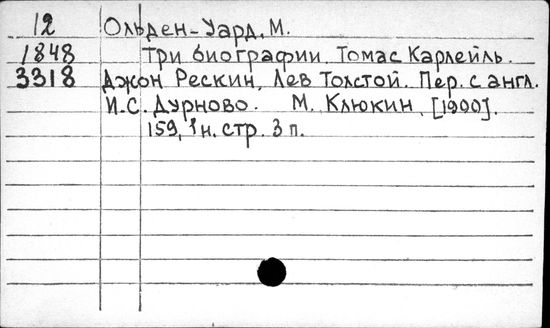 12 Ольден-Уард, М.
1848 Три биографии. Томас Карлейль.
3318 Джон Рескин, Лев Толстой. Пер. с англ.
И.С. Дурново. М. Клюкин, [1900].
159, 1 н. стр. 3 п.